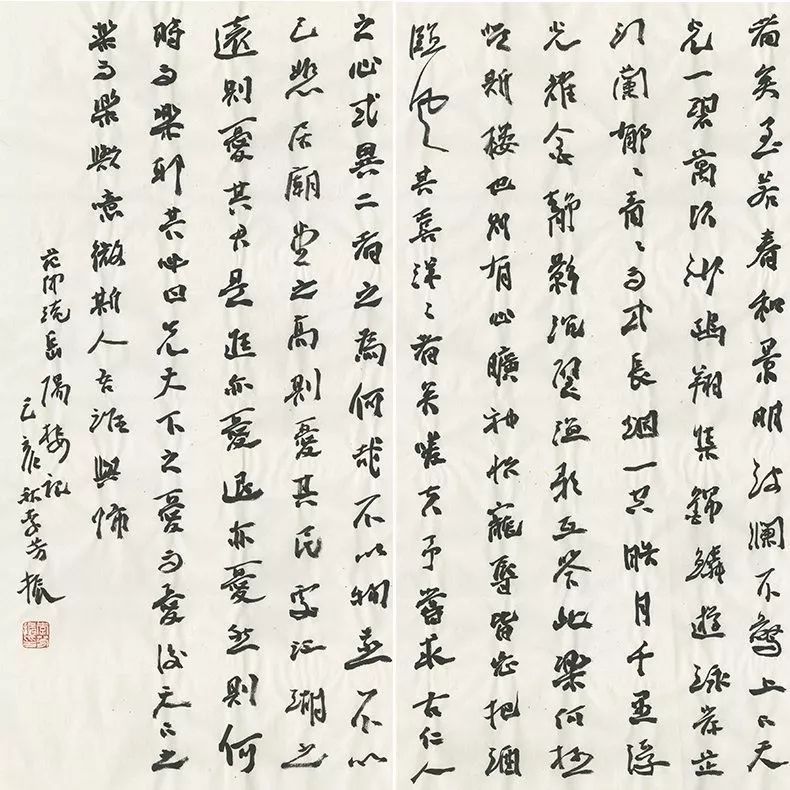 者矣至若春和景明波瀾不驚上下天
光一碧萬頃沙鷗翔集錦鱗遊泳岸芷
汀蘭郁々青々而或長烟一空皓月千里浮
光耀金靜影沉璧漁歌互答此樂何極
登斯樓也則有心曠神怡寵辱皆忘把酒
臨風其喜洋々者矣嗟夫予嘗求古仁人
之心或異二者之為何哉不以物喜不以
己悲居廟堂之高則憂其民處江湖之
遠則憂其君是進亦憂退亦憂然則何
時而樂耶其必曰先天下之憂而憂後天下之
樂而樂歟噫微斯人吾誰與歸
范仲淹岳陽樓記
己亥秋李芳振